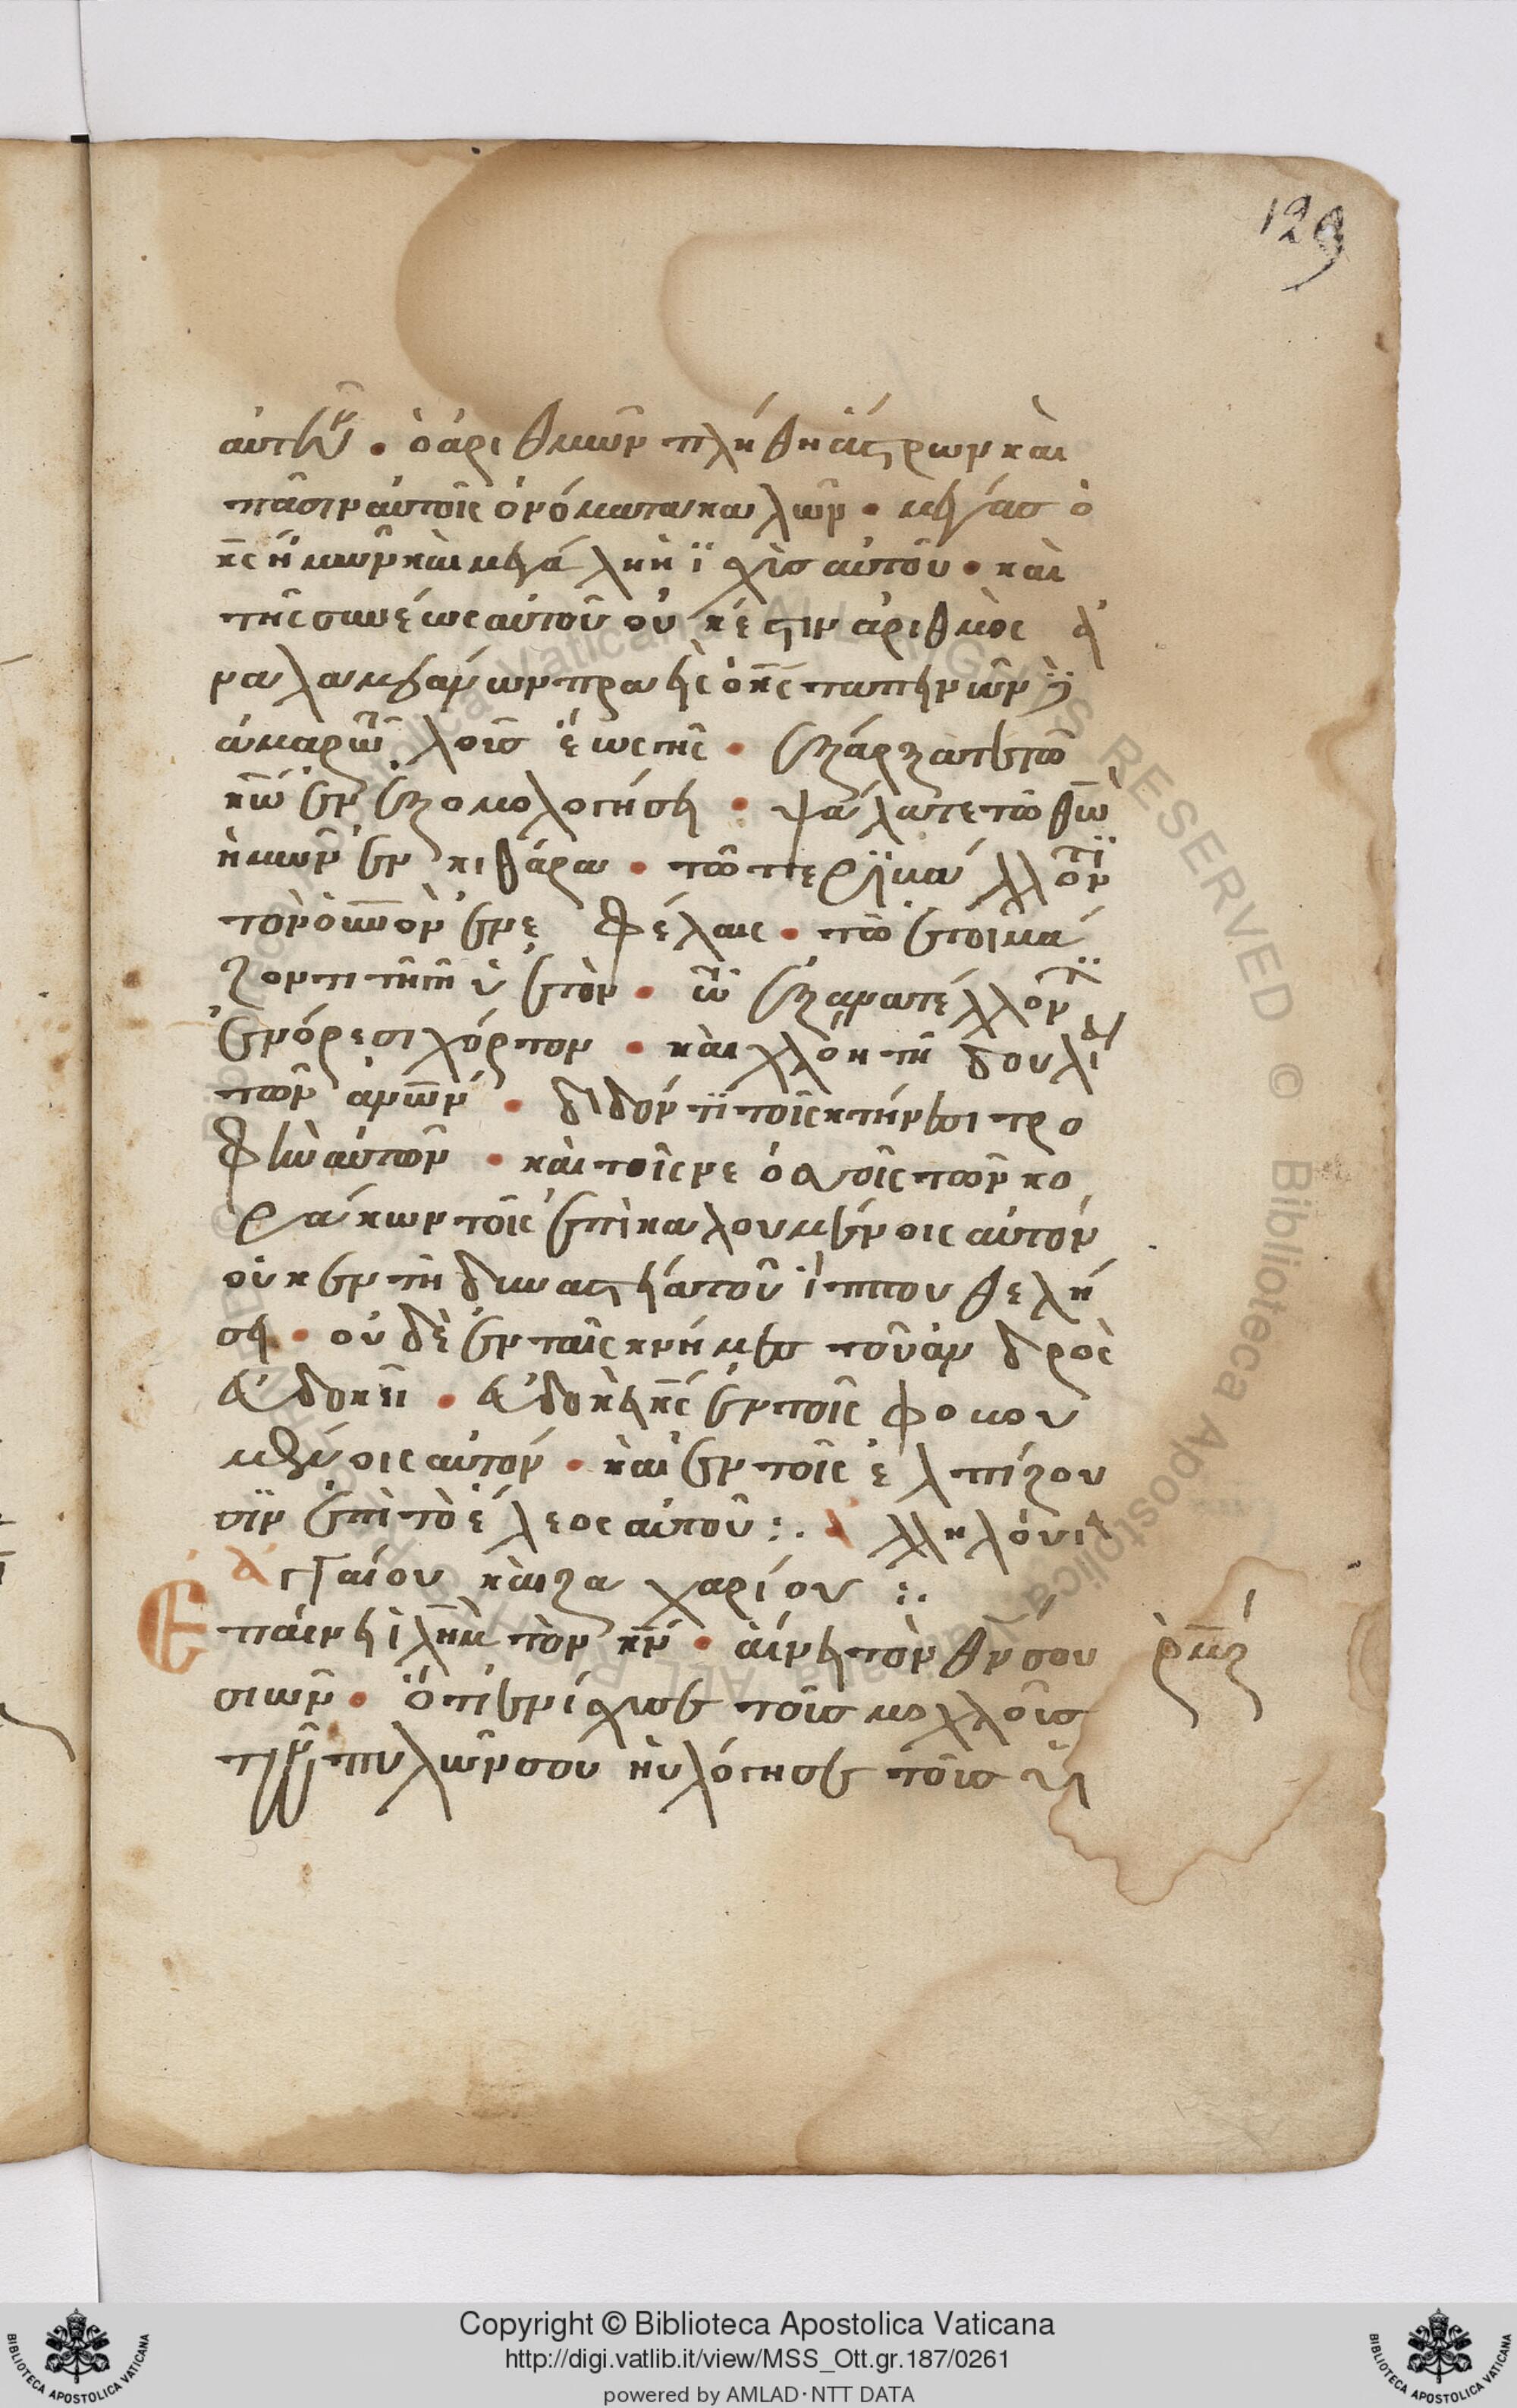 129
αὐτῶν · ὁ ἀριθμῶν πλήθη ἄστρων καὶ
πᾶσιν αὐτοῖς ὀνόματα καλῶν · μέγας ὁ
κ̅ς ἡμῶν καὶ μεγάλη ἡ ϊσχὺσ αὐτοῦ · καὶ
τῆς συνέσεως αὐτοῦ οὐκ ἔστιν ἀριθμὸς ἀ
ναλαμβάνων πραεῖς ὁ κ̅ς ταπεινῶν
ἁμαρτωλοὺσ ἕως γῆς · ἐξάρξατε τῶ
κ̅ω ἐν ἐξομολογήσει · ψάλατε τῶ θ̅ω
ἡμῶν ἐν κιθάρα · τῶ περιβάλλοντι
τὸν οὐ̅νὸν ἐν νεφέλαις · τῶ ἑτοιμά
ζοντι τῆ γῆ ὑετὸν · τῶ ἐξανατέλλοντι
ἐν ὄρεσι χόρτον · καὶ χλόην τῆ δουλεία
τῶν ἀν̅ων · διδόντι τοῖς κτήνεσι τρο
φὴν αὐτῶν · καὶ τοῖς νεοσσοῖς τῶν κο
ράκων τοῖς ἐπικαλουμένοις αὐτόν
οὐκ ἐν τῆ δυναστεία τοῦ ἵππου θελή
σει · οὐδὲ ἐν ταῖς κνήμεσ τοῦ ἀνδρὸς
εὐδοκεῖ · εὐδοκεῖ κ̅ς ἐν τοῖς φοβου
μένοις αὐτόν · καὶ ἐν τοῖς ἐλπίζου
σϊν ἐπὶ τὸ ἔλεος αὐτοῦ :. ἀλληλούια
ἀγγαίου καὶ ζαχαρίου :.
Ἐπαίνει ἰλ̅ημ τὸν κ̅ν · αἴνει τὸν θ̅ν σου
σιων · ὅτι ἐνίσχυσε τοῖσ μοχλοῖσ
τῶν πυλῶν σου ηὐλόγησε τοῖσ υἱ
ρμζ
Copyright © Biblioteca Apostolica Vaticana
http://digi.vatlib.it/view/MSS_Ott.gr.187/0261
powered by AMLAD·NTT DATA